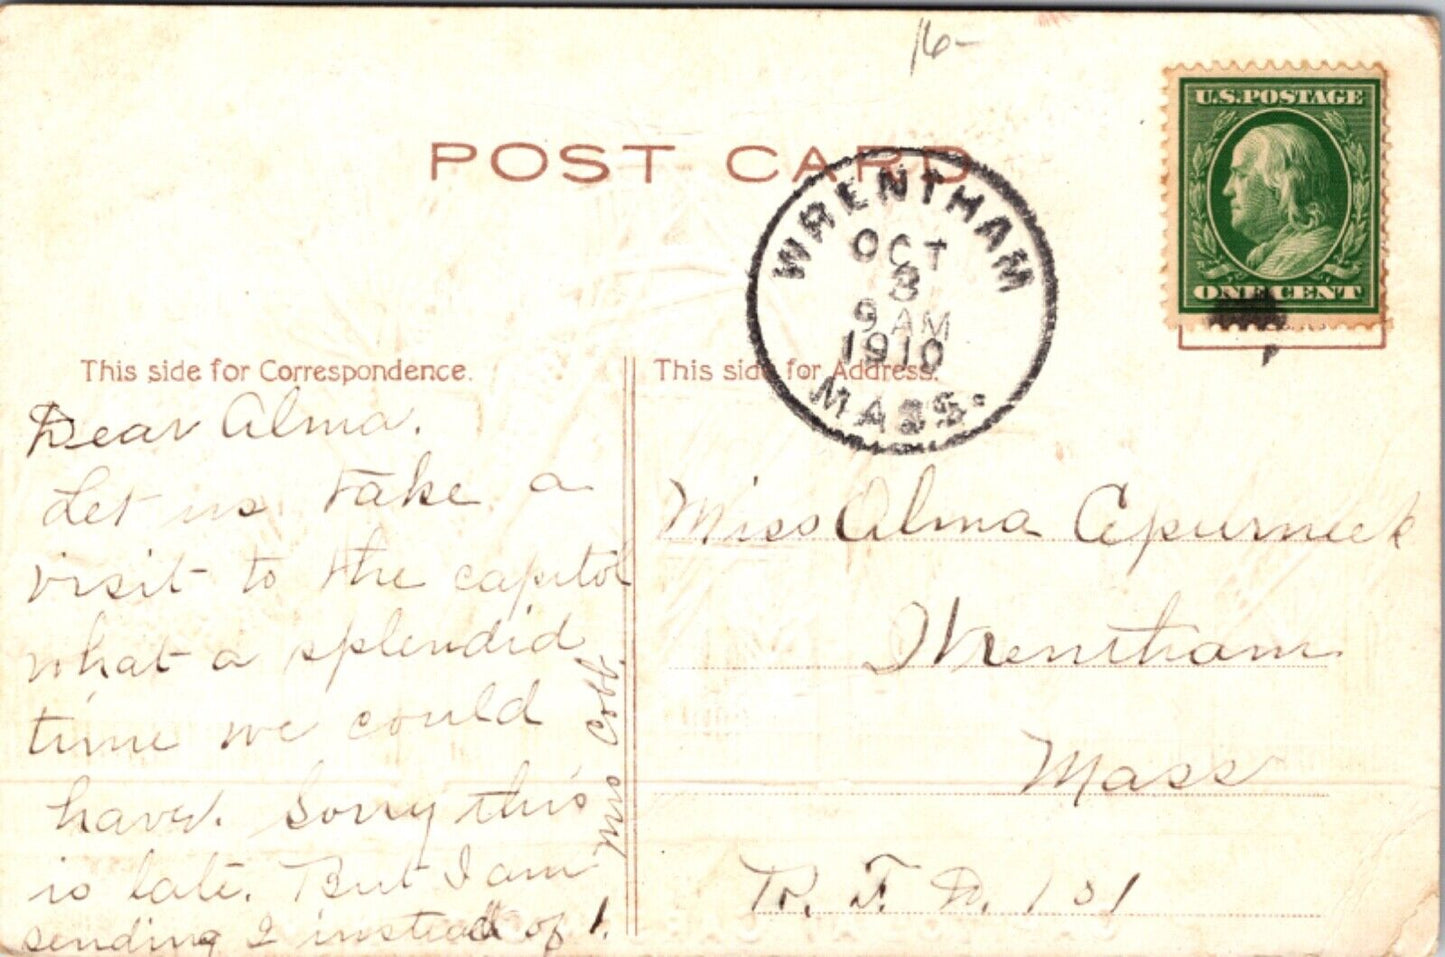 16-
U.S. POSTAGE
ONE CENT
POST CARD
WRENTHAM
OCT
3
9 AM
1910
MASS.
This side for Correspondence.
Dear Alma.
Let us take a
visit to the capitol
what a splendid
time we could
have. Sorry this
is late. But I am
sending 2 instead of 1.
Mrs Cobb.
This side for Address.
Miss Alma
Wrentham
Mass
R. F. D.